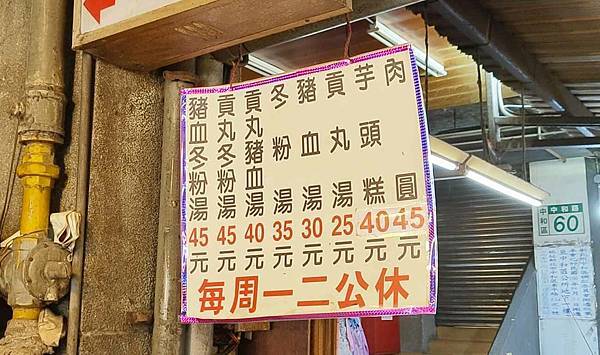 肉圓45元
芋頭糕40元
貢丸湯25元
豬血湯30元
冬粉湯35元
貢丸豬血湯40元
貢丸冬粉湯45元
豬血冬粉湯45元
每周一二公休
中和路
60
中和區